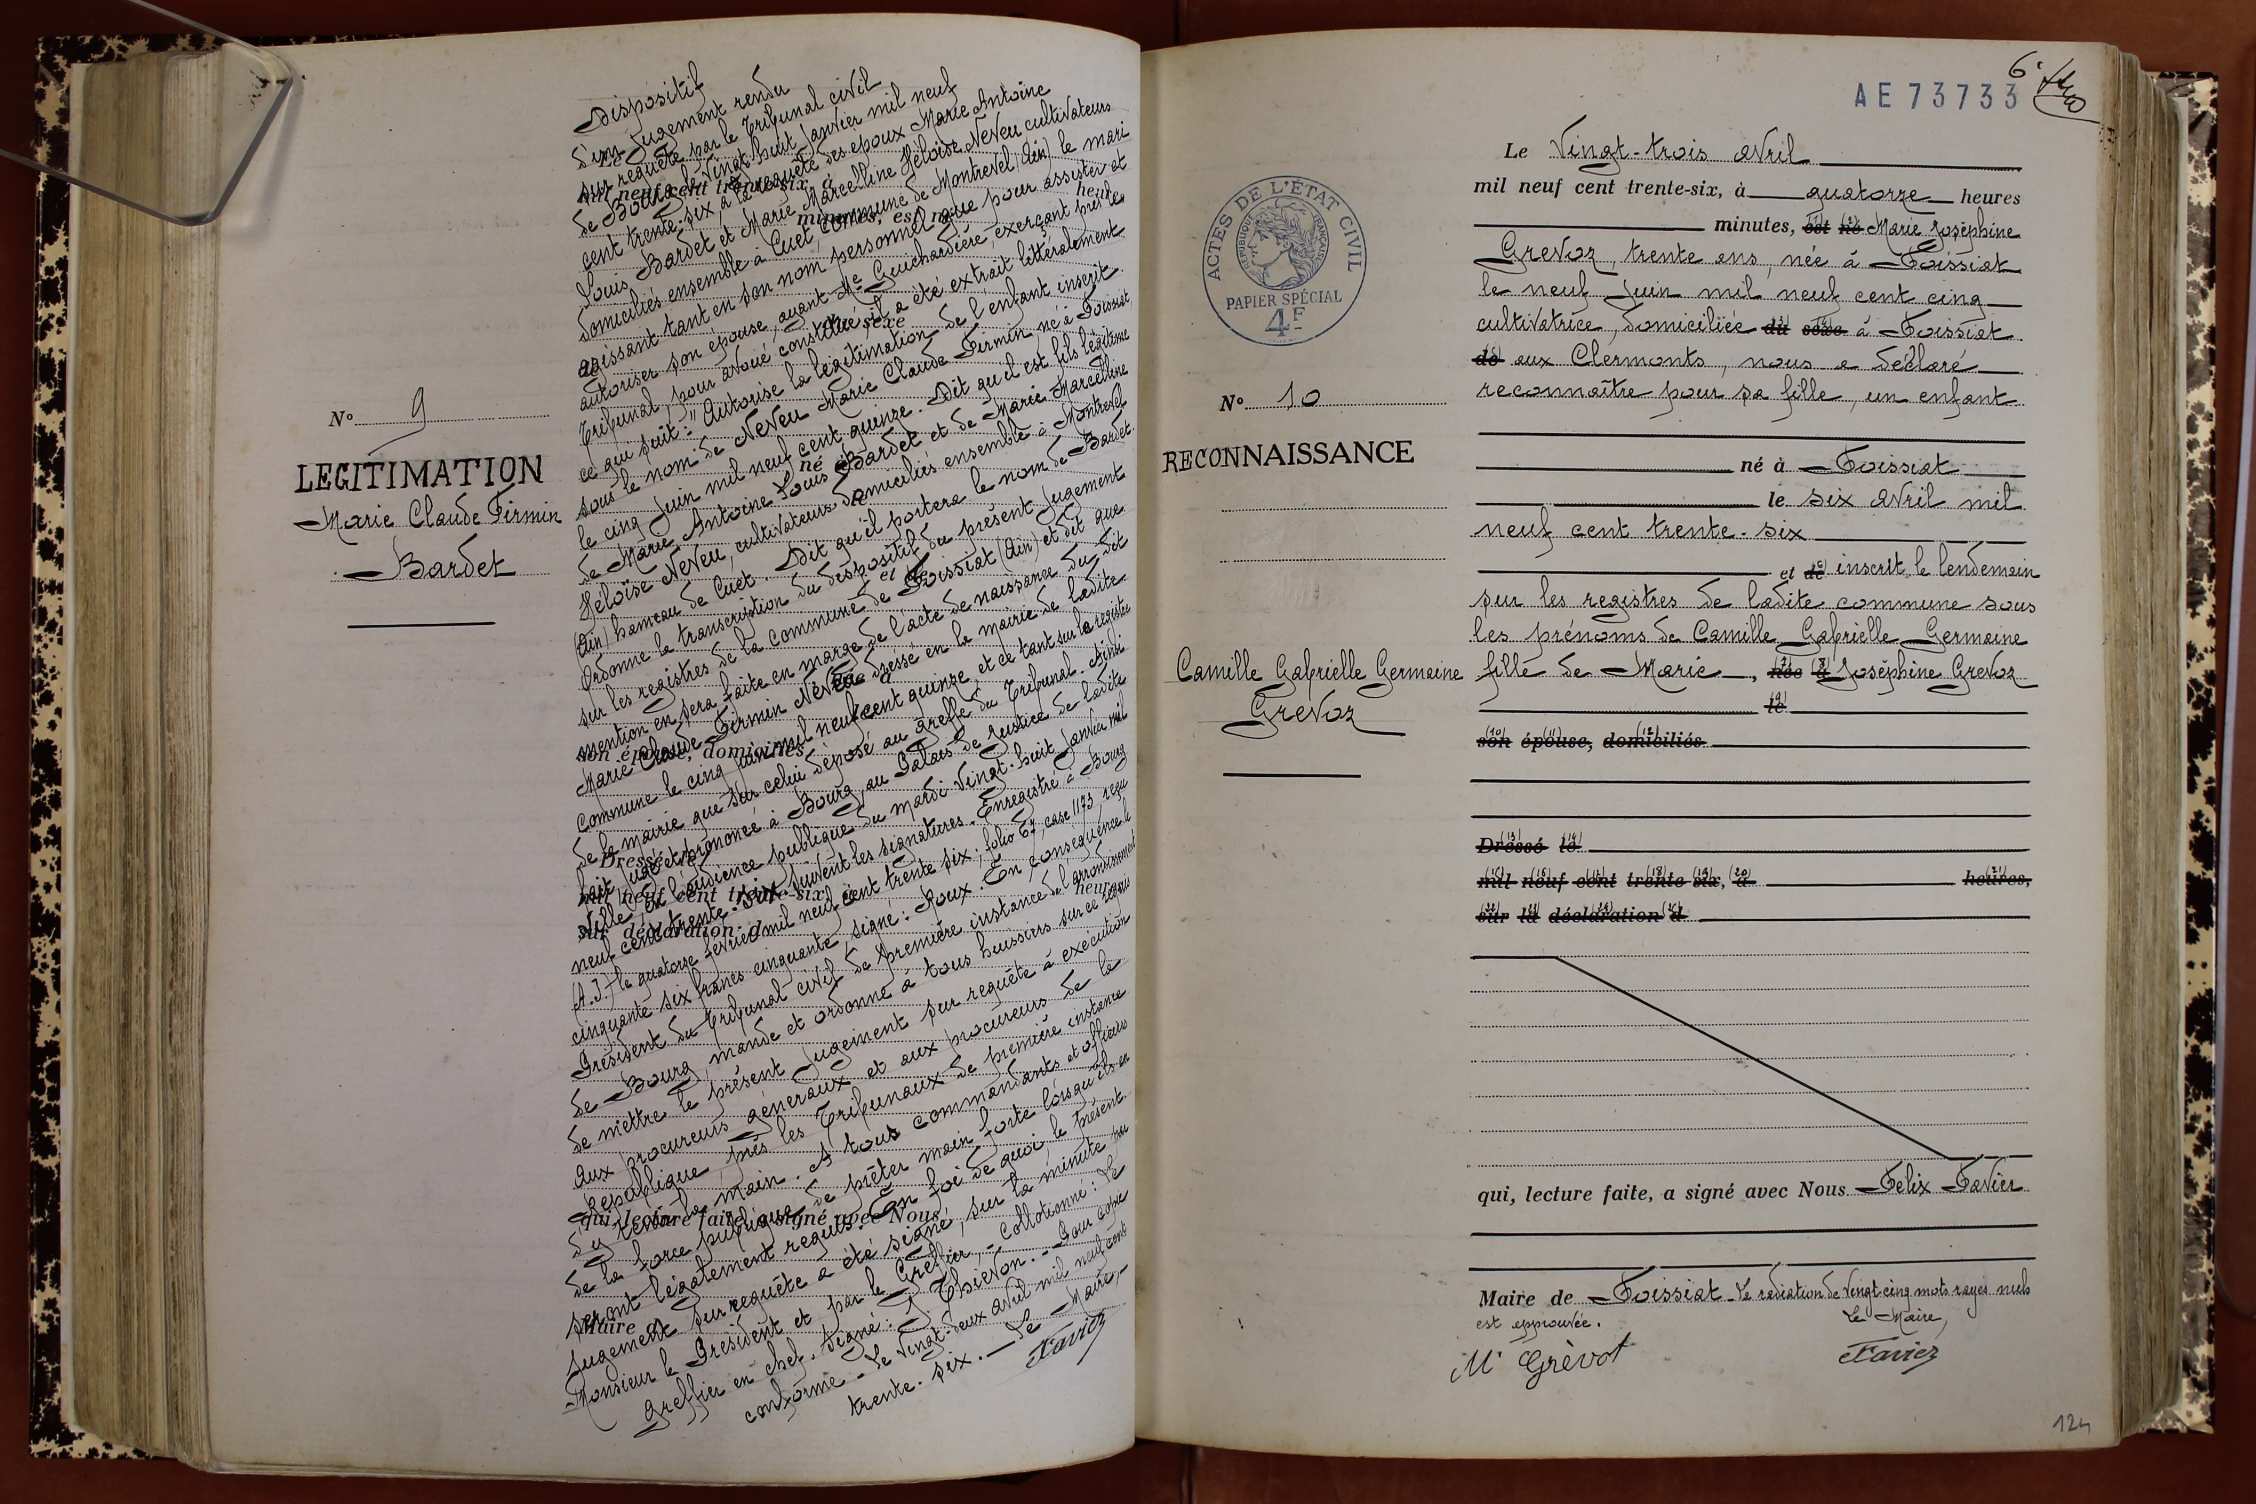 N° 9
LEGITIMATION
Marie Claude Firmin
Bardet
Dispositif
d'un jugement rendu
sur requête par le Tribunal civil
de Bourg le vingt huit janvier mil neuf
cent trente-six, à la requête des époux Marie Antoine
Louis Bardet et Marie Marcelline Héloïse Neveu cultivateurs
domiciliés ensemble à Cuet commune de Montrevel (Ain) le mari
agissant tant en son nom personnel que pour assister et
autoriser son épouse, ayant Me Guichardière exerçant près le
Tribunal, pour avoué constitué il a été extrait littéralement
ce qui suit: "Autorise la légitimation de l'enfant inscrit
sous le nom de Neveu Marie Claude Firmin né à Foissiat
le cinq juin mil neuf cent quinze. Dit qu'il est fils légitime
de Marie Antoine Louis Bardet et de Marie Marcelline
Héloïse Neveu, cultivateurs domiciliés ensemble à Montrevel
(Ain) hameau de Cuet. Dit qu'il portera le nom de Bardet.
Ordonne la transcription du dispositif du présent jugement
sur les registres de la commune de Foissiat (Ain) et dit que
mention en sera faite en marge de l'acte de naissance du dit
Marie Claude Firmin Neveu dressé en la mairie de ladite
commune le cinq juin mil neuf cent quinze, et ce tant sur le registre
de la mairie que sur celui déposé au greffe du Tribunal. Ainsi
fait jugé et prononcé à Bourg, au Palais de Justice de ladite
ville en l'audience publique du mardi vingt-huit janvier mil
neuf cent trente-six. Suivent les signatures. Enregistré à Bourg
(A.J.) le quatorze février mil neuf cent trente six, folio 67, case 1173, reçu
cinquante six francs cinquante signé: Roux. En conséquence le
Président du Tribunal civil de première instance de l'arrondissement
de Bourg, mande et ordonne à tous huissiers sur ce requis
de mettre le présent jugement sur requête à exécution
Aux procureurs généraux et aux procureurs de la
République près les Tribunaux de première instance
d'y tenir la main. A tous commandants et officiers
de la force publique de prêter main forte lorsqu'ils en
seront légalement requis. En foi de quoi, le présent
jugement sur requête a été signé, sur la minute par
Monsieur le Président et par le Greffier. - Collationné: Le
greffier en chef. Signé: J. Thiévon. - Pour copie
conforme - Le vingt-deux avril mil neuf cent
trente-six. - Le Maire,
Favier
AE 73733
Le Vingt-trois avril
mil neuf cent trente-six, à quatorze heures
minutes, est né Marie Joséphine
Grevoz, trente ans, née à Foissiat
le neuf juin mil neuf cent cinq
cultivatrice, domiciliée du sexe à Foissiat
de aux Clermonts, nous a déclaré
reconnaître pour sa fille, un enfant
né à Foissiat
le six avril mil
neuf cent trente-six
et de inscrit le lendemain
sur les registres de ladite commune sous
les prénoms de Camille Gabrielle Germaine
fille de Marie, née à Joséphine Grevoz
le
son épouse, domiciliés
Dressé le
mil neuf cent trente six, à heures,
sur la déclaration d
qui, lecture faite, a signé avec Nous Félix Favier
Maire de Foissiat - La radiation de vingt cinq mots rayés nuls
est approuvée. Le Maire,
M Grèvot Favier
ACTES DE L'ÉTAT CIVIL
RÉPUBLIQUE FRANÇAISE
PAPIER SPÉCIAL
4F
N° 10
RECONNAISSANCE
Camille Gabrielle Germaine
Grevoz
124